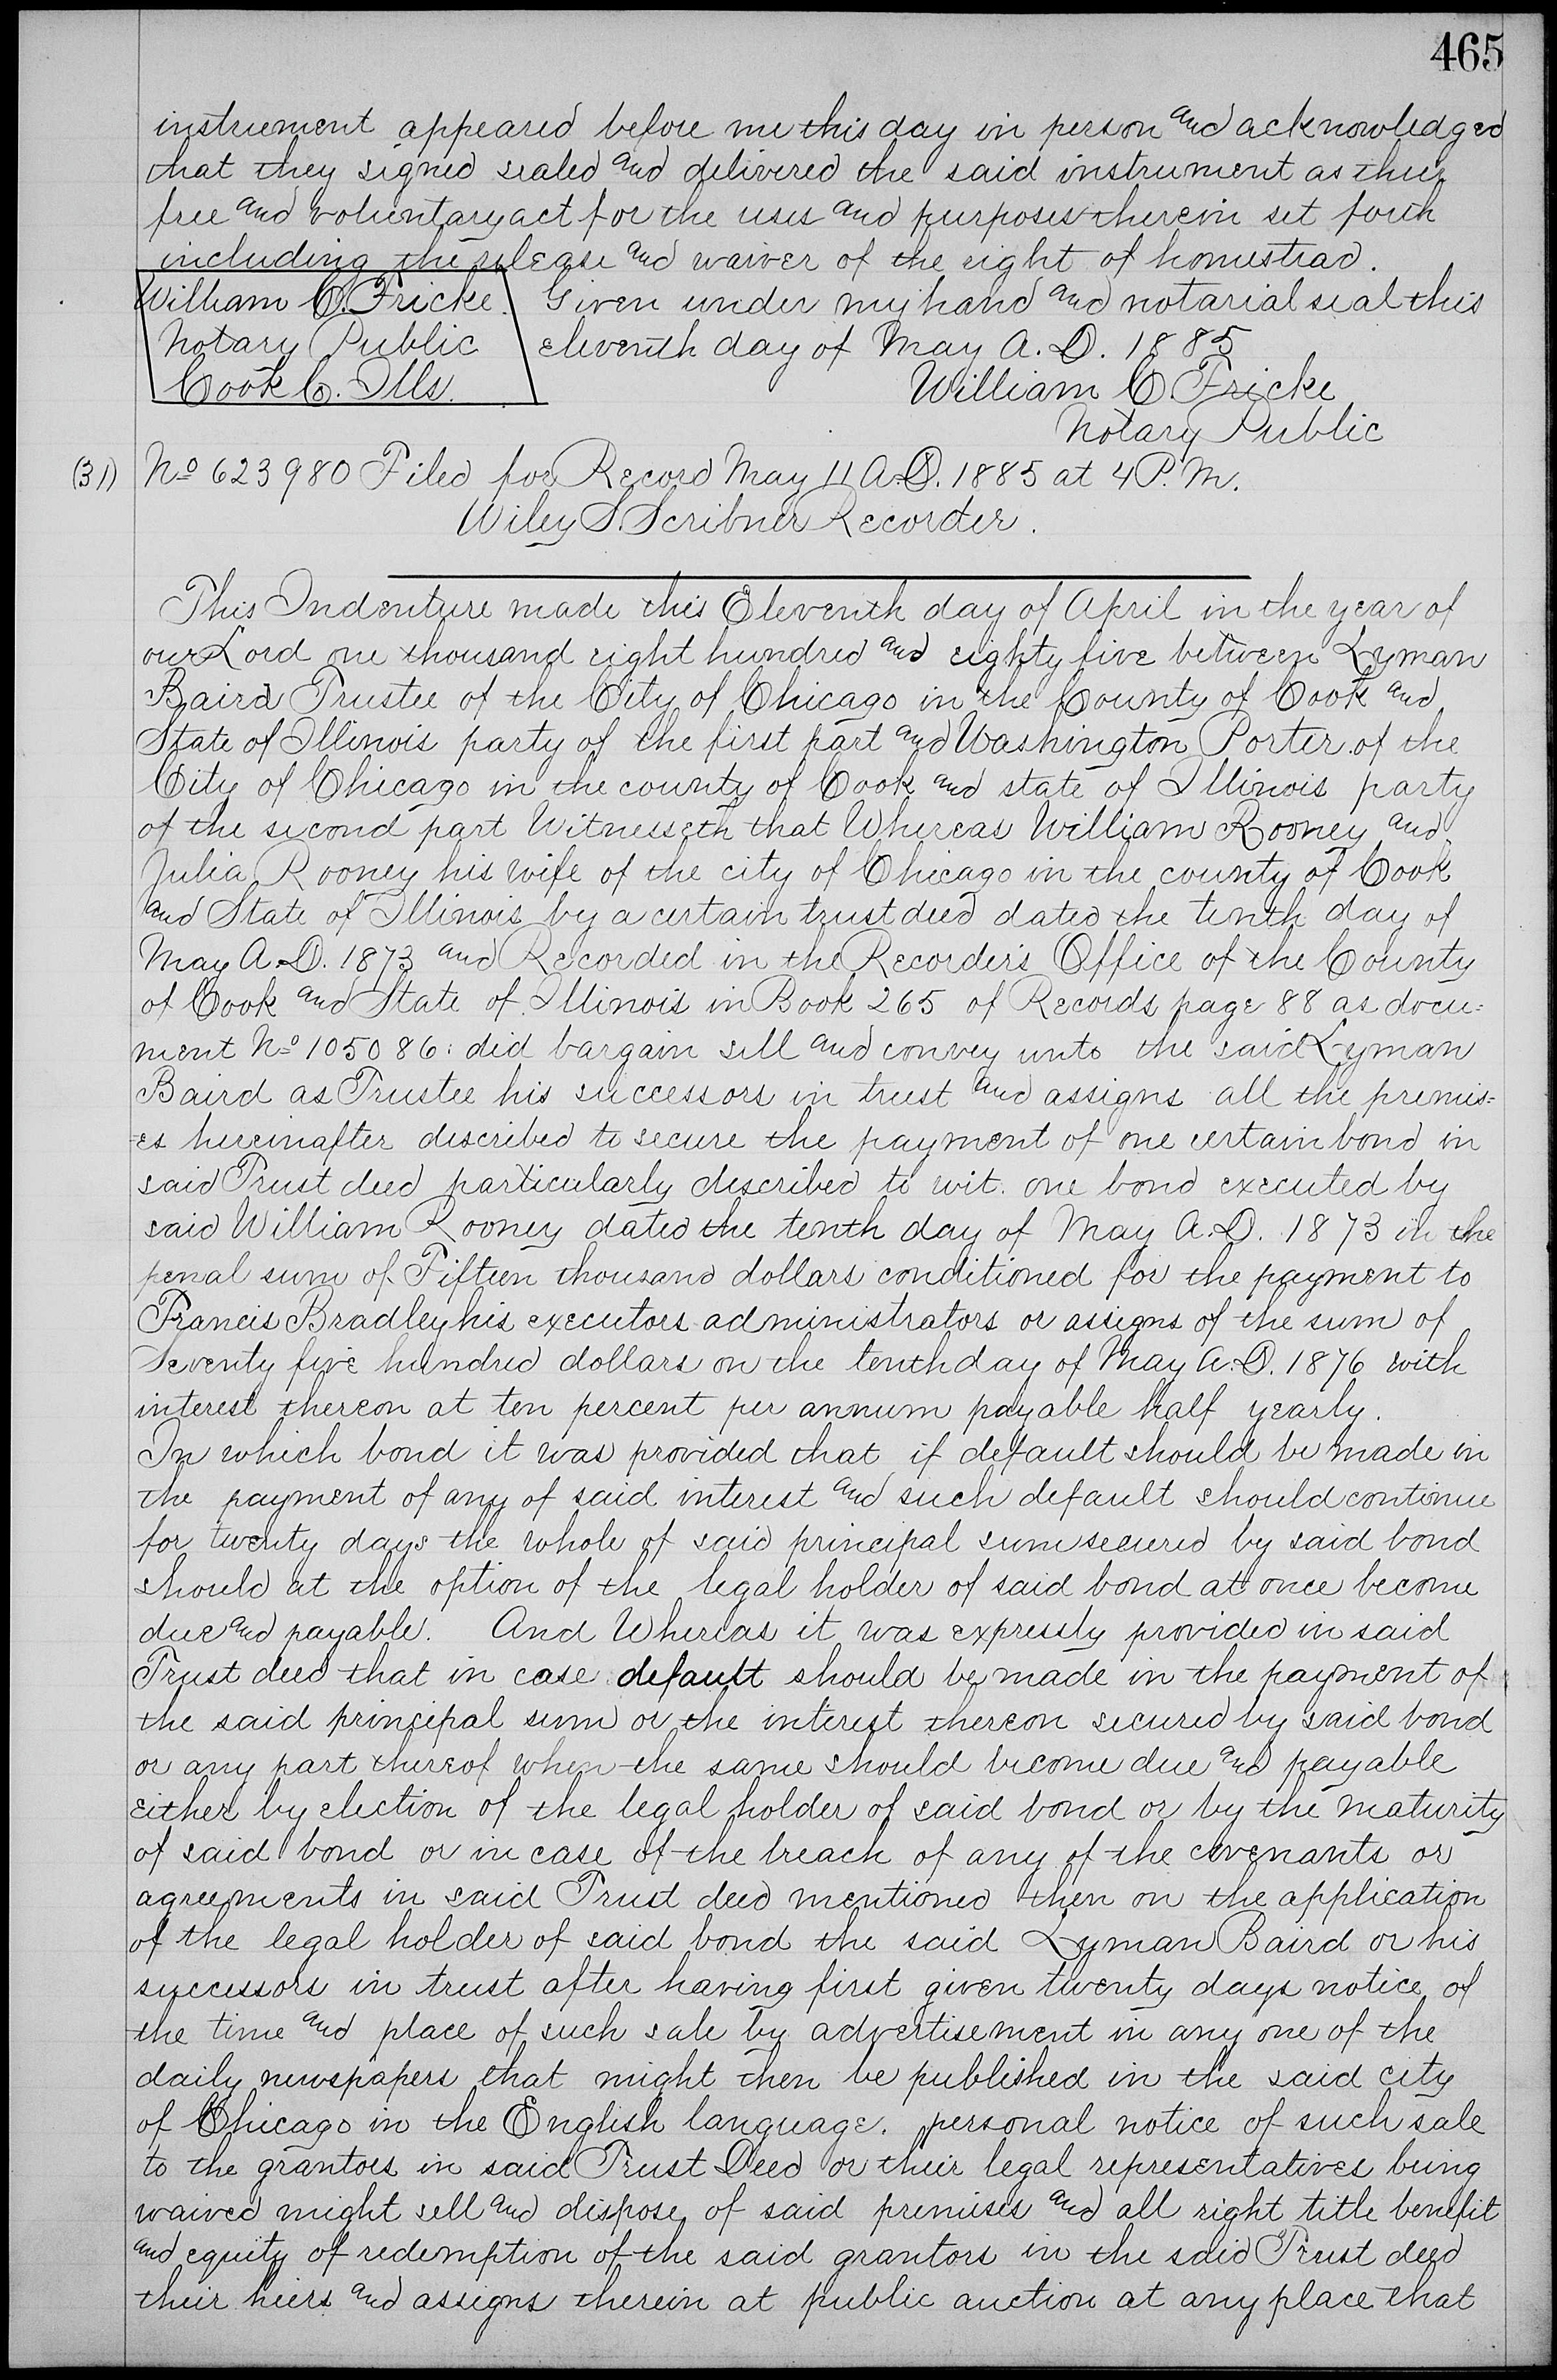 465
instrument appeared before me this day in person and acknowledged
that they signed sealed and delivered the said instrument as their
free and voluntary act for the uses and purposes therein set forth
including the release and waiver of the right of homestead.
William C. Fricke. Given under my hand and notarial seal this
Notary Public eleventh day of May A. D. 1885
Cook Co. Ills. William C Fricke
Notary Public
(31) No 623980 Filed for Record May 11 A.D. 1885 at 4 P. M.
Wiley S. Scribner Recorder.
This Indenture made this Eleventh day of April in the year of
our Lord one thousand eight hundred and eighty five between Lyman
Baird Trustee of the City of Chicago in the County of Cook and
State of Illinois party of the first part and Washington Porter of the
City of Chicago in the county of Cook and state of Illinois party
of the second part Witnesseth that Whereas William Rooney and
Julia Rooney his wife of the city of Chicago in the county of Cook
and State of Illinois by a certain trust deed dated the tenth day of
May A.D. 1873 and Recorded in the Recorder's Office of the County
of Cook and State of Illinois in Book 265 of Records page 88 as docu=
ment No 105086: did bargain sell and convey unto the said Lyman
Baird as Trustee his successors in trust and assigns all the premis=
-es hereinafter described to secure the payment of one certain bond in
said Trust deed particularly described to wit. one bond executed by
said William Rooney dated the tenth day of May A.D. 1873 in the
penal sum of Fifteen thousand dollars conditioned for the payment to
Francis Bradley his executors administrators or assigns of the sum of
Seventy five hundred dollars on the tenth day of May A.D. 1876 with
interest thereon at ten percent per annum payable half yearly.
In which bond it was provided that if default should be made in
the payment of any of said interest and such default should continue
for twenty days the whole of said principal sum secured by said bond
should at the option of the legal holder of said bond at once become
due and payable. And Whereas it was expressly provided in said
Trust deed that in case default should be made in the payment of
the said principal sum or the interest thereon secured by said bond
or any part thereof when the same should become due and payable
either by election of the legal holder of said bond or by the maturity
of said bond or in case of the breach of any of the covenants or
agreements in said Trust deed mentioned then on the application
of the legal holder of said bond the said Lyman Baird or his
successors in trust after having first given twenty days notice of
the time and place of such sale by advertisement in any one of the
daily newspapers that might then be published in the said city
of Chicago in the English language. personal notice of such sale
to the grantors in said Trust Deed or their legal representatives being
waived might sell and dispose of said premises and all right title benefit
and equity of redemption of the said grantors in the said Trust deed
their heirs and assigns therein at public auction at any place that